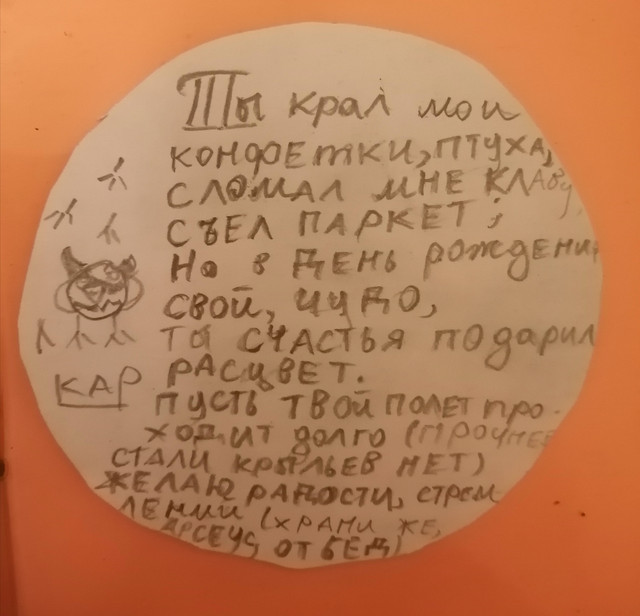 Ты крал мои
конфетки, птуха,
сломал мне клаву,
съел паркет;
Но в день рождения
свой, чудо,
ты счастья подарил
расцвет.
КАР
Пусть твой полет про-
ходит долго (прочнее
стали крыльев нет)
желаю радости, стрем
лений (храни же,
Арсеус, от бед)